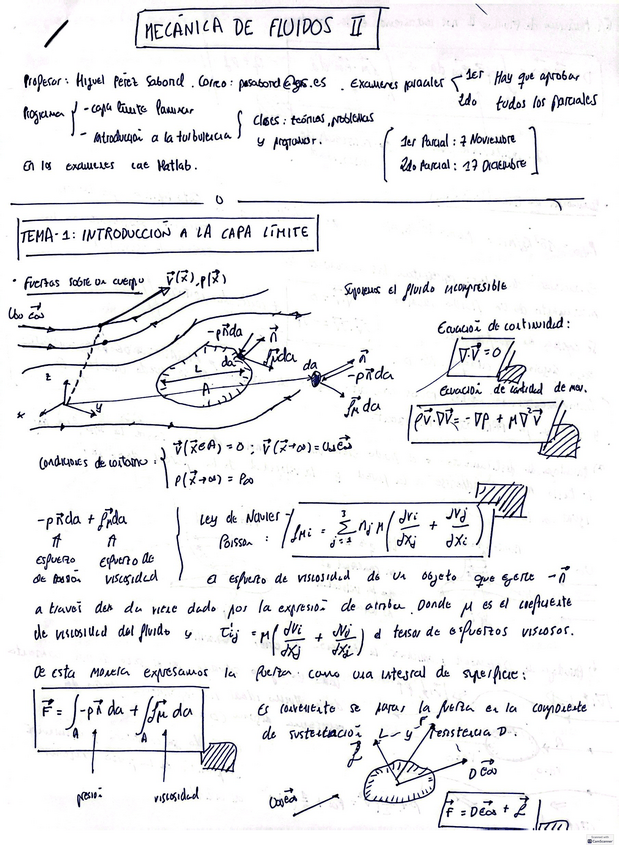 MECÁNICA DE FLUIDOS II
Profesor: Miguel Pérez Saborid. Correo: psaborid@us.es. Exámenes parciales 1er Hay que aprobar
2do todos los parciales
Programa - capa límite laminar
- Introducción a la turbulencia
Clases: teóricas, problemas
y programar.
1er Parcial: 7 Noviembre
2do Parcial: 17 Diciembre
En los exámenes cae Matlab.
TEMA-1: INTRODUCCIÓN A LA CAPA LÍMITE
· Fuerzas sobre un cuerpo
V⃗(x⃗), p(x⃗)
Suponemos el fluido incompresible
U∞ e⃗∞
-pn⃗da
n⃗
da
L
A
da
n⃗
-pn⃗da
f⃗μ da
z
x
y
Ecuación de continuidad:
∇·V⃗ = 0
Ecuación de cantidad de mov.
ρV⃗·∇V⃗ = -∇p + μ∇²V⃗
Condiciones de contorno:
V⃗(x⃗∈A) = 0 ; V⃗(x⃗→∞) = U∞e⃗∞
p(x⃗→∞) = p∞
-pn⃗da + f⃗μda
esfuerzo de presión
esfuerzo de viscosidad
Ley de Navier-
Poisson:
fμi = Σ j=1 3 nj μ (dVi/dxj + dVj/dxi)
El esfuerzo de viscosidad de un objeto que ejerce -n⃗
a través de da viene dado por la expresión de arriba. Donde μ es el coeficiente
de viscosidad del fluido y τ'ij = μ(dVi/dxj + dVj/dxj) el tensor de esfuerzos viscosos.
De esta manera expresamos la fuerza como una integral de superficie:
F⃗ = ∫A -pn⃗ da + ∫A f⃗μ da
presión
viscosidad
Es conveniente separar la fuerza en la componente
de sustentación L y resistencia D.
L⃗
F
De⃗∞
U∞e⃗∞
F⃗ = De⃗∞ + L⃗
CamScanner